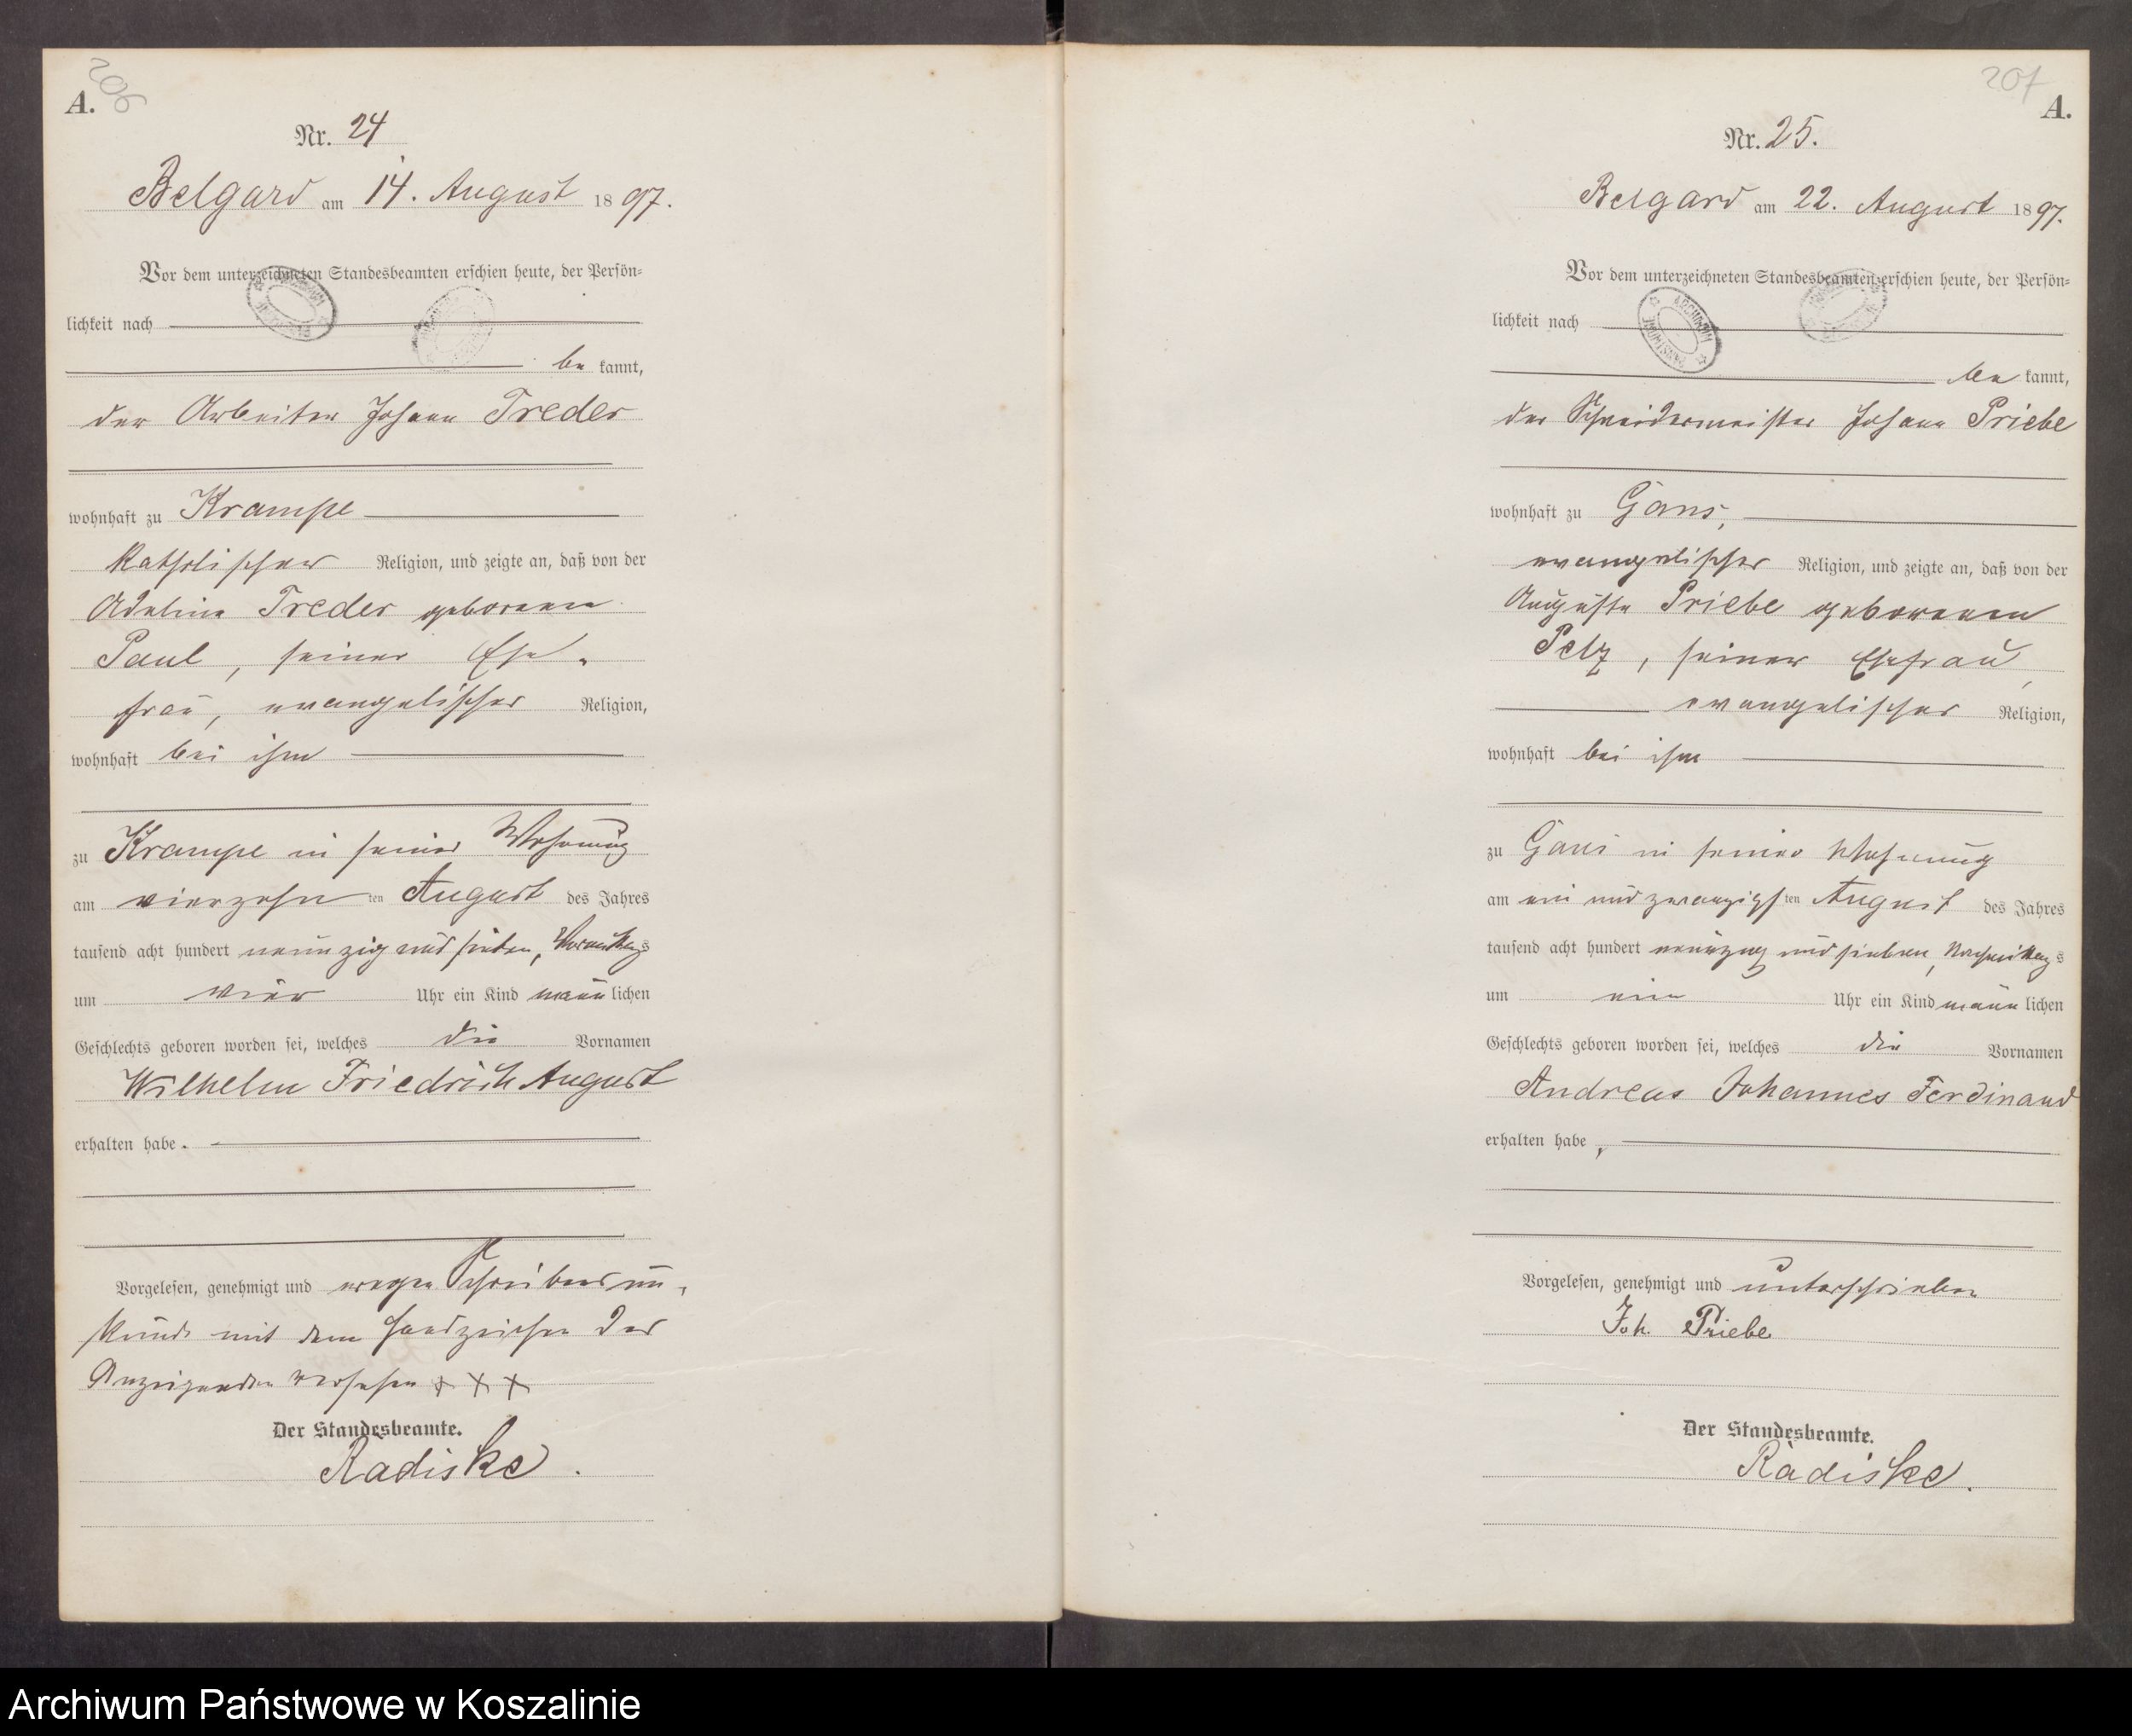 206
A.
Nr. 24
Belgard am 14. August 1897.
Vor dem unterzeichneten Standesbeamten erschien heute, der Persön-
lichkeit nach
be kannt,
der Arbeiter Johann Treder
wohnhaft zu Krampe
katholischer Religion, und zeigte an, daß von der
Adeline Treder geborenen
Paul, seiner Ehe-
frau, evangelischer Religion,
wohnhaft bei ihm
zu Krampe in seiner Wohnung
am vierzehn ten August des Jahres
tausend acht hundert neunzig und sieben, Vormittags
um vier Uhr ein Kind männlichen
Geschlechts geboren worden sei, welches die Vornamen
Wilhelm Friedrich August
erhalten habe.
Vorgelesen, genehmigt und wegen Schreibensun-
kunde mit dem Handzeichen des
Anzeigenden versehen + + +
Der Standesbeamte.
Radiske.
207
A.
Nr. 25.
Belgard am 22. August 1897.
Vor dem unterzeichneten Standesbeamten erschien heute, der Persön-
lichkeit nach
be kannt,
der Schneidermeister Johann Priebe
wohnhaft zu Gans,
evangelischer Religion, und zeigte an, daß von der
Auguste Priebe geborenen
Pelz, seiner Ehefrau,
evangelischer Religion,
wohnhaft bei ihm
zu Gans in seiner Wohnung
am ein und zwanzigsten August des Jahres
tausend acht hundert neunzig und sieben, Nachmittags
um ein Uhr ein Kind männlichen
Geschlechts geboren worden sei, welches die Vornamen
Andreas Johannes Ferdinand
erhalten habe,
Vorgelesen, genehmigt und unterschrieben
Joh. Priebe
Der Standesbeamte.
Radiske.
Archiwum Państwowe w Koszalinie